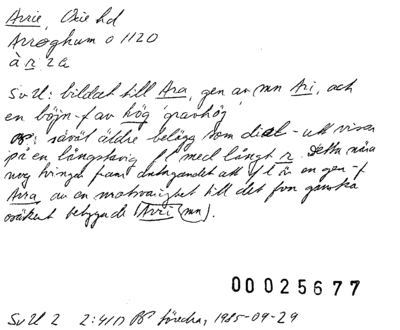 Arrie, Oxie hd
Arrøghum o 1120
à r 2a
SvU: bildat till Ara, gen av mn Ari, och
en böjn-f av hög 'gravhög'
OBS: såväl äldre belägg som dial-utt visar
på en långstavig f l med långt r. Detta måra
nog tvinga fram antagandet att f l är en gen-f
Arra av en motsvarighet till det fvn ganska
osäkert betygade Arri (mn).
00025677
SvU 2 2:41 OBS föredr, 1985-09-29